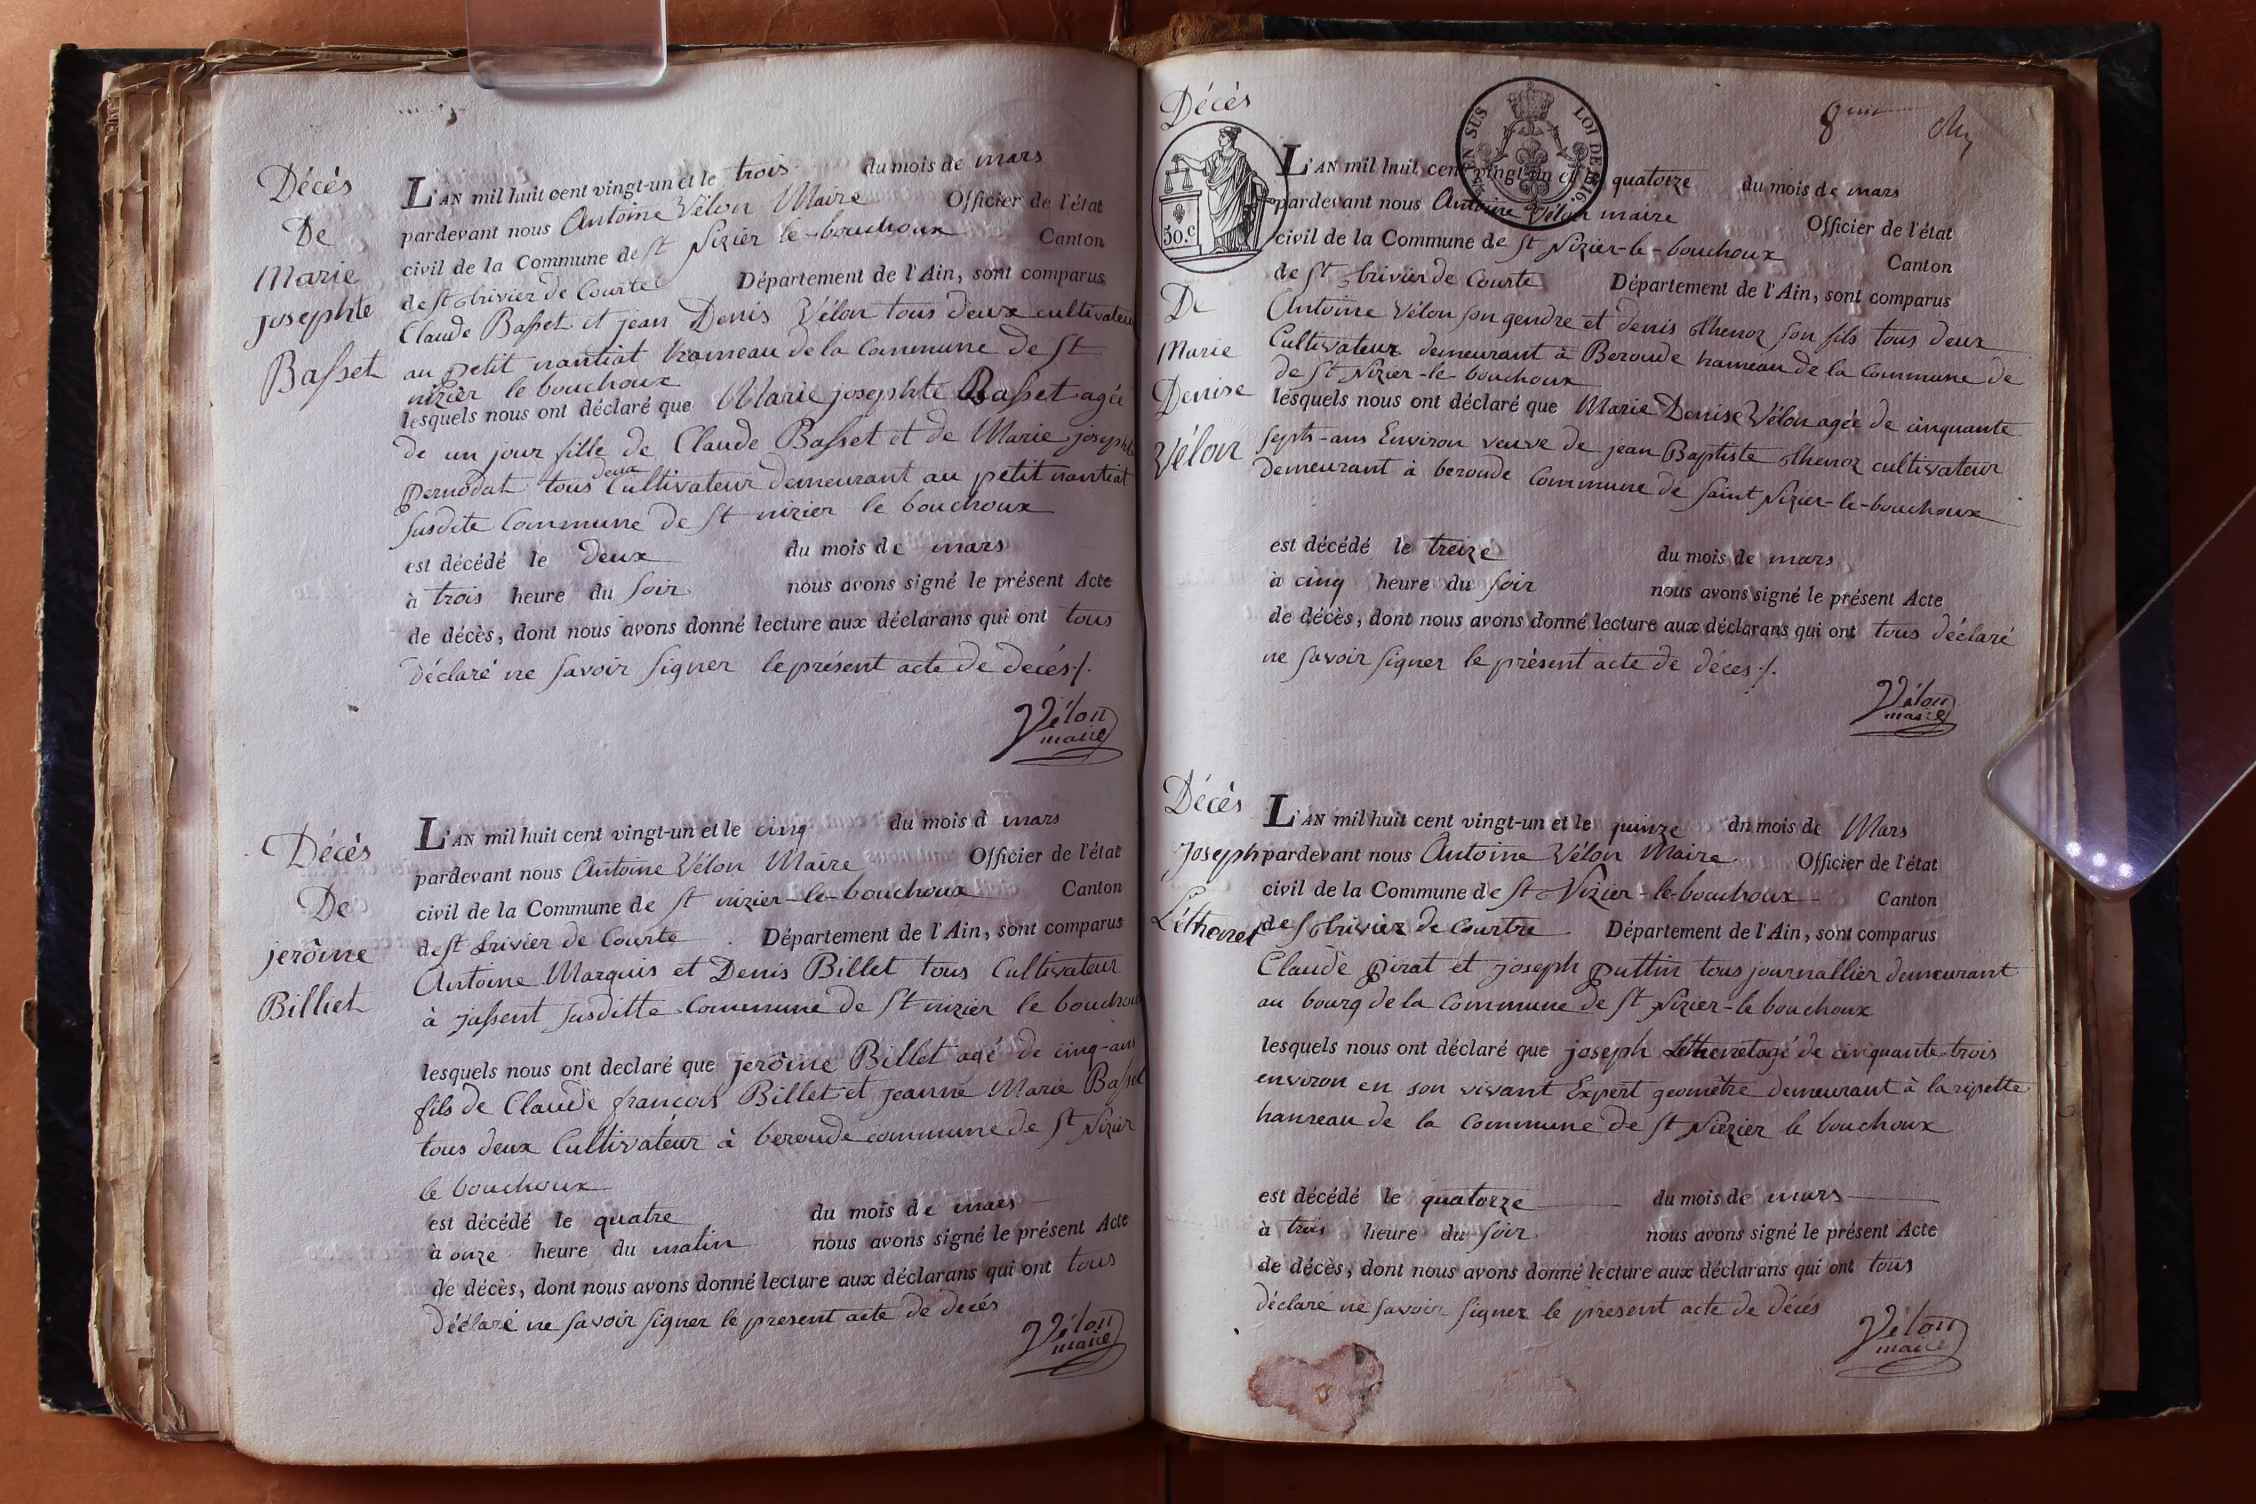 Décès
De
Marie
josephte
Basset
L'AN mil huit cent vingt-un et le trois du mois de mars
pardevant nous Antoine Vélon Maire Officier de l'état
civil de la Commune de St Nizier le-bouchoux Canton
de st trivier de Courte Département de l'Ain, sont comparus
Claude Basset et jean Denis Vélon tous deux cultivateur
au petit nantiat hameau de la Commune de St
nizier le bouchoux
lesquels nous ont déclaré que Marie josephte Basset agée
de un jour fille de Claude Basset et de Marie josephte
pernodat tous deux Cultivateur demeurant au petit nantiat
susdite Commune de St nizier le bouchoux
est décédé le deux du mois de mars
à trois heure du soir nous avons signé le présent Acte
de décès, dont nous avons donné lecture aux déclarans qui ont tous
déclaré ne savoir signer le présent acte de decés ./.
Vélon
maire
Décès
De
jerôme
Billiet
L'AN mil huit cent vingt-un et le cinq du mois d mars
pardevant nous Antoine Vélon Maire Officier de l'état
civil de la Commune de St nizier-le-bouchoux Canton
de st trivier de Courte Département de l'Ain, sont comparus
Antoine Marquis et Denis Billet tous Cultivateur
à jassent susditte Commune de St nizier le bouchoux
lesquels nous ont declaré que jerôme Billet agé de cinq-ans
fils de Claude françois Billet et jeanne Marie Basset
tous deux Cultivateur à beroude commune de St Nizier
le bouchoux
est décédé le quatre du mois de mars
à onze heure du matin nous avons signé le présent Acte
de décès, dont nous avons donné lecture aux déclarans qui ont tous
déclaré ne savoir signer le present acte de decés
Vélon
maire
Décès
De
Marie
Denise
Vélon
50.c
EN SUS LOI DE 1816
8
L'AN mil huit cent vingt-un et le quatorze du mois de mars
pardevant nous Antoine Vélon maire Officier de l'état
civil de la Commune de St Nizier-le-bouchoux Canton
de St trivier de Courte Département de l'Ain, sont comparus
Antoine Vélon son gendre et denis thenoz son fils tous deux
Cultivateur demeurant à Beroude hameau de la Commune de
de St Nizier-le-bouchoux
lesquels nous ont déclaré que Marie Denise Vélon agée de cinquante
septs-ans Environ veuve de jean Baptiste thenoz cultivateur
demeurant à beroude Commune de saint Nizier-le-bouchoux
est décédé le treize du mois de mars
à cinq heure du soir nous avons signé le présent Acte
de décès, dont nous avons donné lecture aux déclarans qui ont tous déclaré
ne savoir signer le présent acte de décès ./.
Vélon
maire
Décès
Joseph
Léthenet
L'AN mil huit cent vingt-un et le quinze du mois de Mars
pardevant nous Antoine Vélon Maire Officier de l'état
civil de la Commune de St Nizier-le-bouchoux Canton
de St trivier de Courtre Département de l'Ain, sont comparus
Claude pirat et joseph puttin tous journallier demeurant
au bourg de la Commune de St Nizier-le bouchoux
lesquels nous ont déclaré que joseph Lethenet agé de cinquante-trois
environ en son vivant Expert geomêtre demeurant à la ripette
hameau de la Commune de St Nizier le bouchoux
est décédé le quatorze du mois de mars
à trois heure du soir nous avons signé le présent Acte
de décès, dont nous avons donné lecture aux déclarans qui ont tous
déclaré ne savoir signer le present acte de décés
Vélon
maire